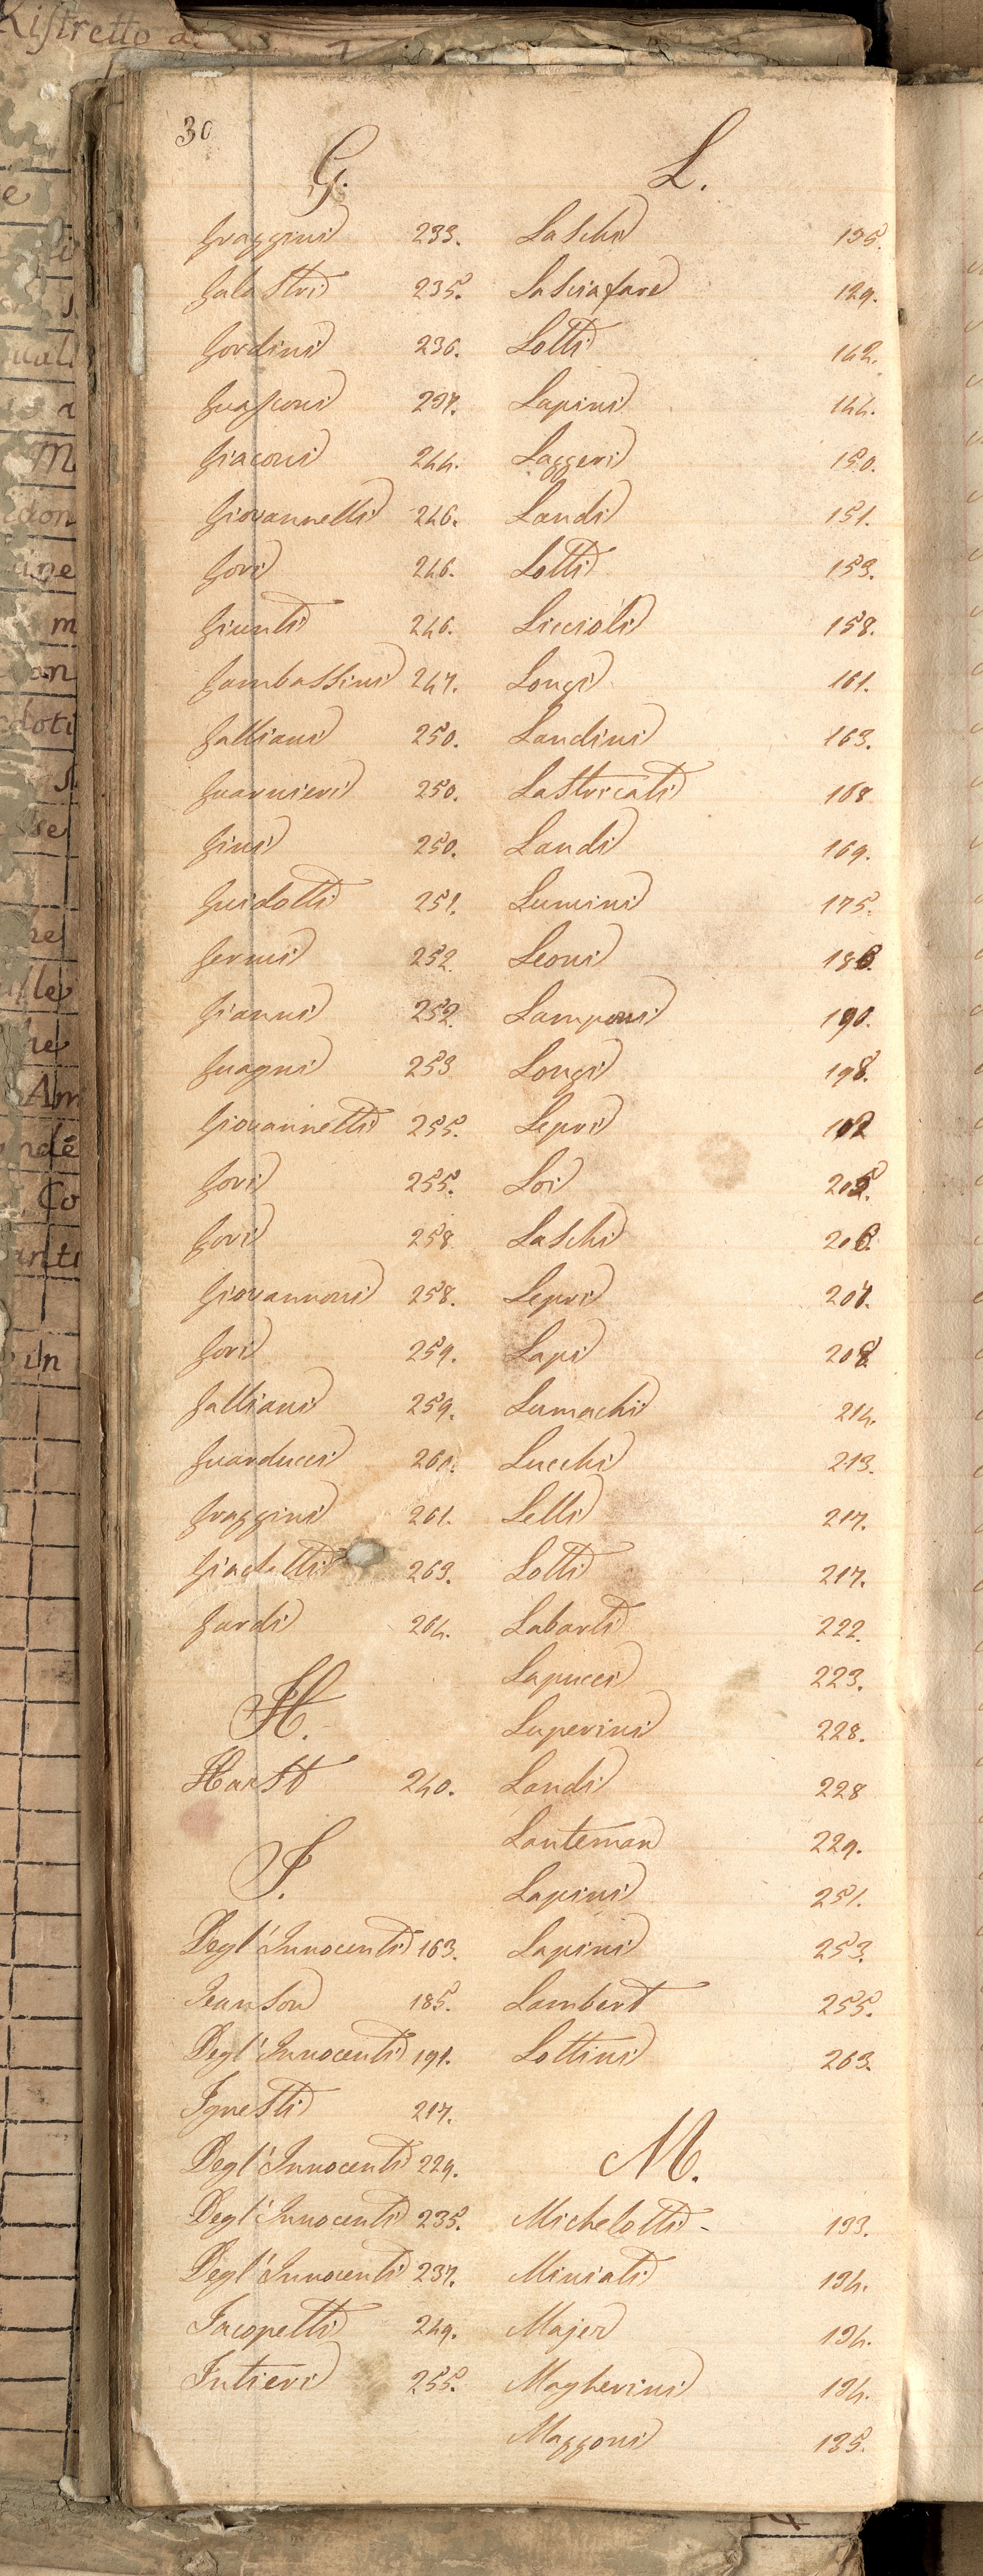 Ristretto d
30
G.
Graggini 233.
Galastri 235.
Gordini 236.
Guasconi 237.
Giaconi 244.
Giovannelli 246.
Gori 246.
Giunti 246.
Gambassini 247.
Galliani 250.
Guarnieri 250.
Gini 250.
Guidotti 251.
Germi 252.
Gianni 252.
Guagni 253
Giovannetti 255.
Gori 255.
Gori 258
Giovannoni 258.
Gori 259.
Galliani 259.
Guarducci 260.
Graggini 261.
263.
Gardi 264.
H.
Harst 240.
I.
Degl'Innocenti 163.
Jeanson 185.
Degl'Innocenti 191.
Ignesti 217.
Degl'Innocenti 229.
Degl'Innocenti 235.
Degl'Innocenti 237.
Jacopetti 249.
Intieri 255.
L.
Laschi 135.
Lasciafare 129.
Lotti 142.
Lapini 144.
Laggeri 150.
Landi 151.
Lotti 153.
Liccioli 158.
Longi 161.
Landini 163.
Lastricati 168
Landi 169.
Lumini 175.
Leoni 186.
Lamponi 190.
Longi 198.
Lepri 102
Loi 205.
Laschi 206.
Lepri 207.
Lapi 208
Lumachi 214.
Lucchi 213.
Lelli 217.
Lotti 217.
Labarti 222.
Lapucci 223.
Luperini 228.
Landi 228
Lanteman 229.
Lapini 251.
Lapini 253.
Lambert 255.
Lottini 263.
M.
Michelotti - 133.
Miniati 134.
Majer 134.
Magherini 134.
Mazzoni 135.